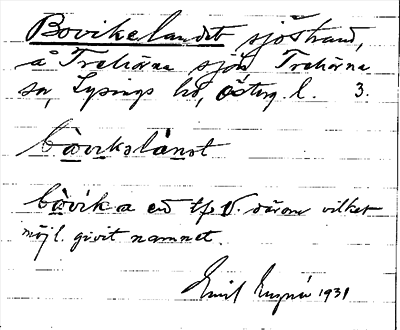 Bovikelandet sjöstrand,
å Trehörna sjön Trehörna
sn, Lysings hd, Österg. l. 3.
bòvikslànət
bòvik a en tp V. därom vilket
möjl. givit namnet.
Emil 1931